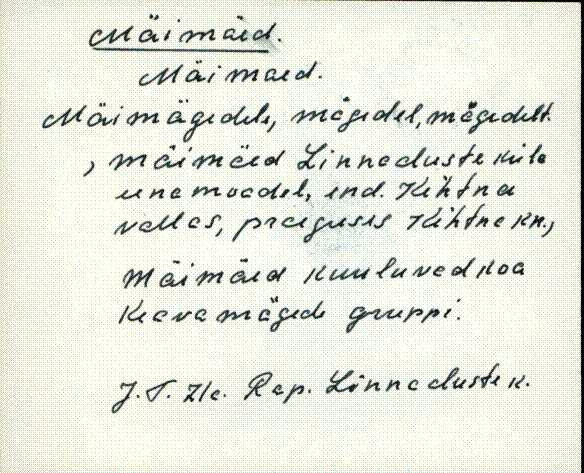 Mäimäed.
Mäimaed.
Mäimägedele, mägedel, mägedelt.
, mäimäed Linnaaluste küla
unamaadel, end. Kehtna
vallas, praeguses Kehtna kn.,
Mäimäed kuuluvad ka
Keava mägede gruppi.
J. T. Rap. Linnaaluste k.